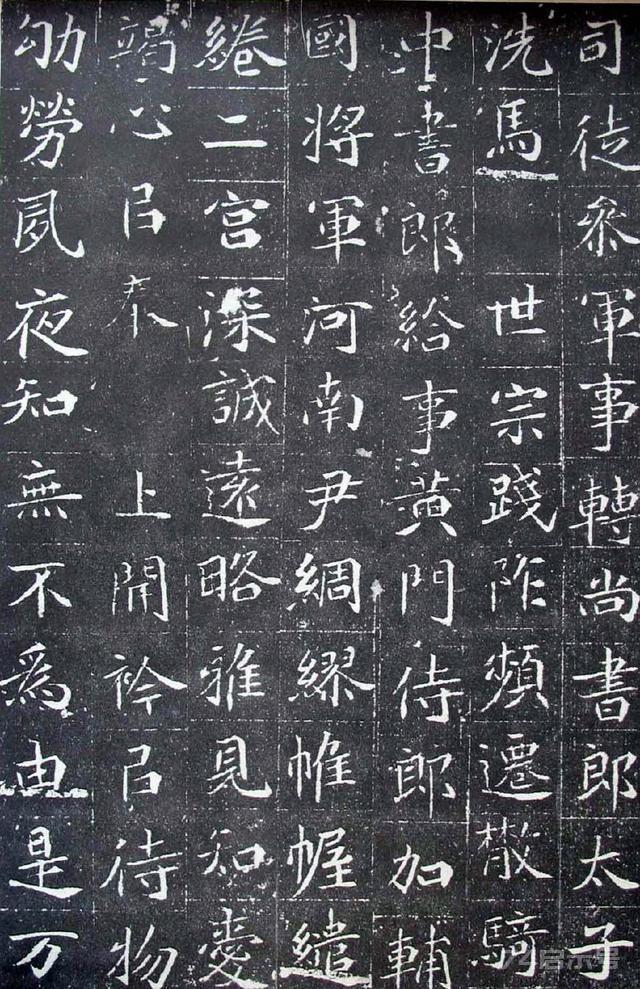 司徒叅軍事轉尚書郎太子
洗馬 世宗踐阼頻遷散騎
中書郎給事黃門侍郎加輔
國將軍河南尹綢繆帷幄繾
綣二宮深誠遠略雅見知愛
竭心㠯奉 上開衿㠯待物
劬勞夙夜知無不為由是万
启示号